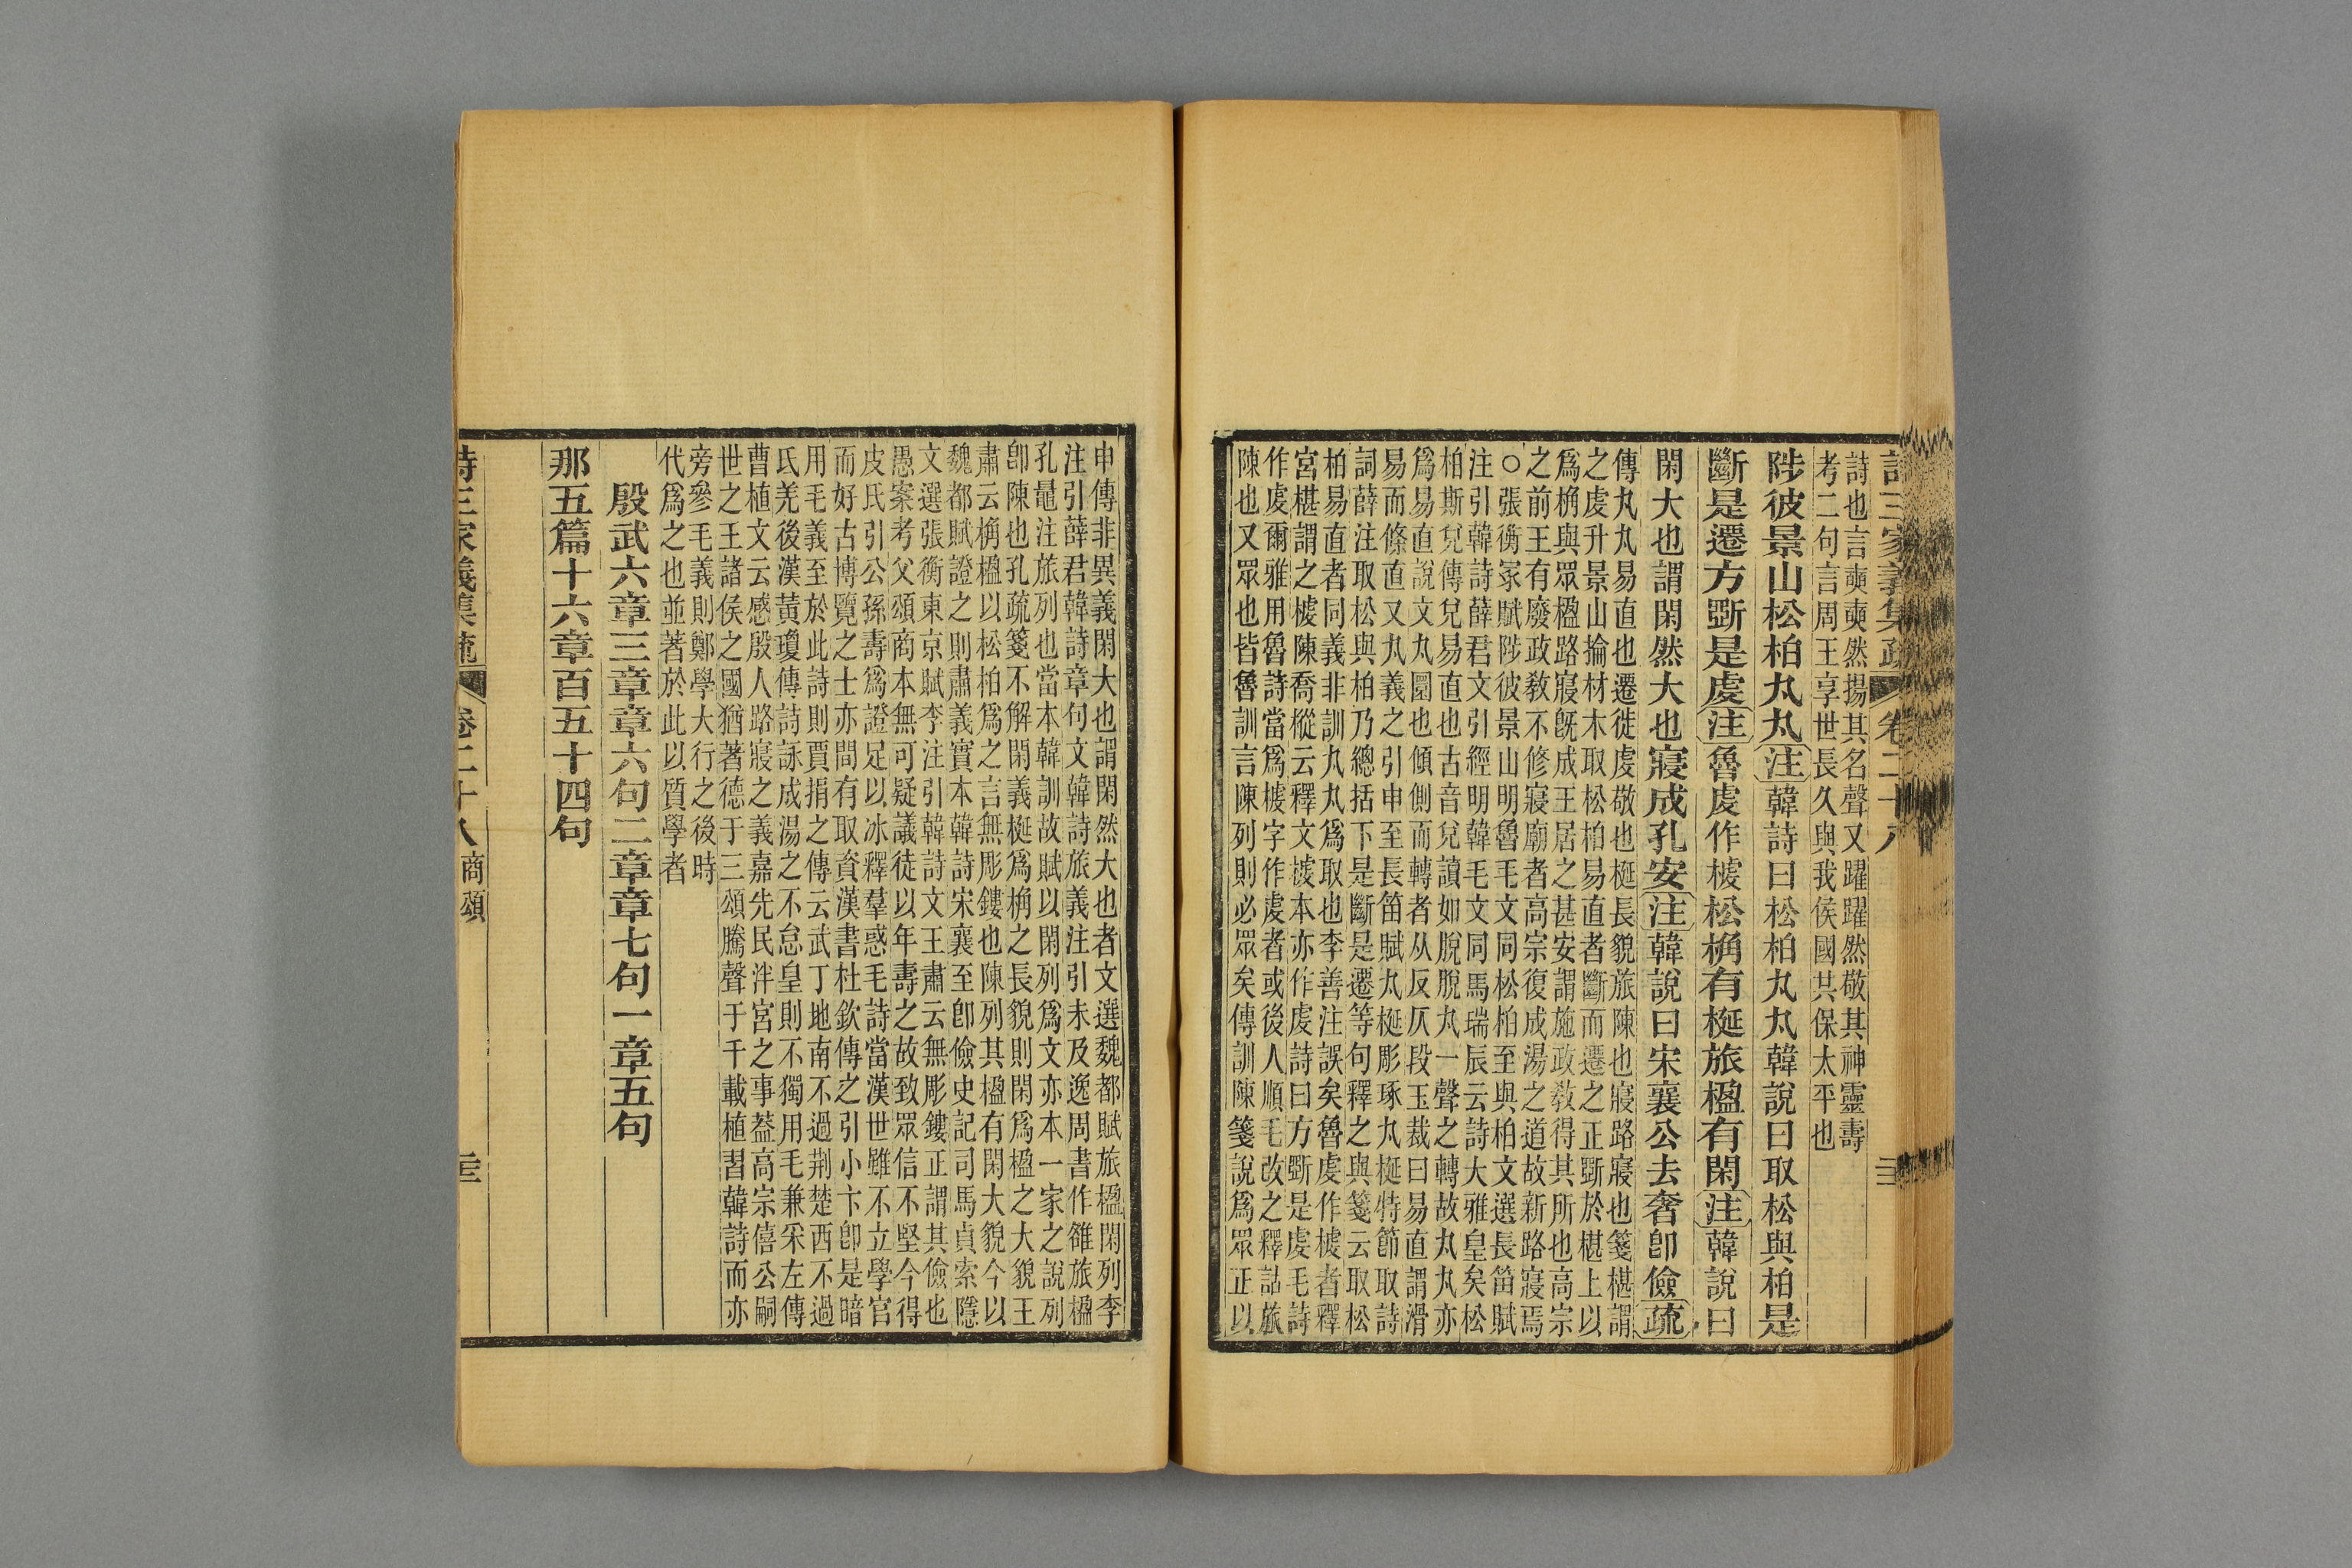 詩三家義集疏 卷二十八
詩也言奭奭然揚其名聲又躍躍然敬其神靈壽
考二句言周王享世長久與我侯國共保太平也
陟彼景山松柏丸丸注韓詩曰松柏丸丸韓說曰取松與柏是
斷是遷方斲是虔注魯虔作榩松桷有梴旅楹有閑注韓說曰
閑大也謂閑然大也寢成孔安注韓說曰宋襄公去奢卽儉疏
傳丸丸易直也遷徙虔敬也梴長貌旅陳也寢路寢也箋椹謂
之虔升景山掄材木取松柏易直者斷而遷之正斲於椹上以
爲桷與眾楹路寢旣成王居之甚安謂施政敎得其所也高宗
之前王有廢政敎不修寢廟者高宗復成湯之道故新路寢焉
○張衡冢賦陟彼景山明魯毛文同松柏至與柏文選長笛賦
注引韓詩薛君文引經明韓毛文同馬瑞辰云詩大雅皇矣松
柏斯兌傳兌易直也古音兌讀如脫脫丸一聲之轉故丸丸亦
爲易直說文丸圜也傾側而轉者从反仄段玉裁曰易直謂滑
易而條直又丸義之引申至長笛賦丸梴彫琢丸梴特節取詩
詞薛注取松與柏乃總括下是斷是遷等句釋之與箋云取松
柏易直者同義非訓丸丸爲取也李善注誤矣魯虔作榩者釋
宮椹謂之榩陳喬樅云釋文榩本亦作虔詩曰方斲是虔毛詩
作虔爾雅用魯詩當爲榩字作虔者或後人順毛改之釋詁旅
陳也又眾也皆魯訓言陳列則必眾矣傳訓陳箋說爲眾正以
申傳非異義閑大也謂閑然大也者文選魏都賦旅楹閑列李
注引薛君韓詩章句文韓詩旅義注引未及逸周書作雒旅楹
孔鼂注旅列也當本韓訓故賦以閑列爲文亦本一家之說列
卽陳也孔疏箋不解閑義梴爲桷之長貌則閑爲楹之大貌王
肅云桷楹以松柏爲之言無彫鏤也陳列其楹有閑大貌今以
魏都賦證之則肅義實本韓詩宋襄至卽儉史記司馬貞索隱
文選張衡東京賦李注引韓詩文王肅云無彫鏤正謂其儉也
愚案考父頌商本無可疑議徒以年壽之故致眾信不堅今得
皮氏引公孫壽爲證足以冰釋羣惑毛詩當漢世雖不立學官
而好古博覽之士亦間有取資漢書杜欽傳之引小卞卽是暗
用毛義至於此詩則賈捐之傳云武丁地南不過荆楚西不過
氐羌後漢黃瓊傳詩詠成湯之不怠皇則不獨用毛兼采左傳
曹植文云感殷人路寢之義嘉先民泮宮之事葢高宗僖公嗣
世之王諸侯之國猶著德于三頌騰聲于千載植習韓詩而亦
旁參毛義則鄭學大行之後時
代爲之也並著於此以質學者
殷武六章三章章六句二章章七句一章五句
那五篇十六章百五十四句
詩三家義集疏 卷二十八 商頌